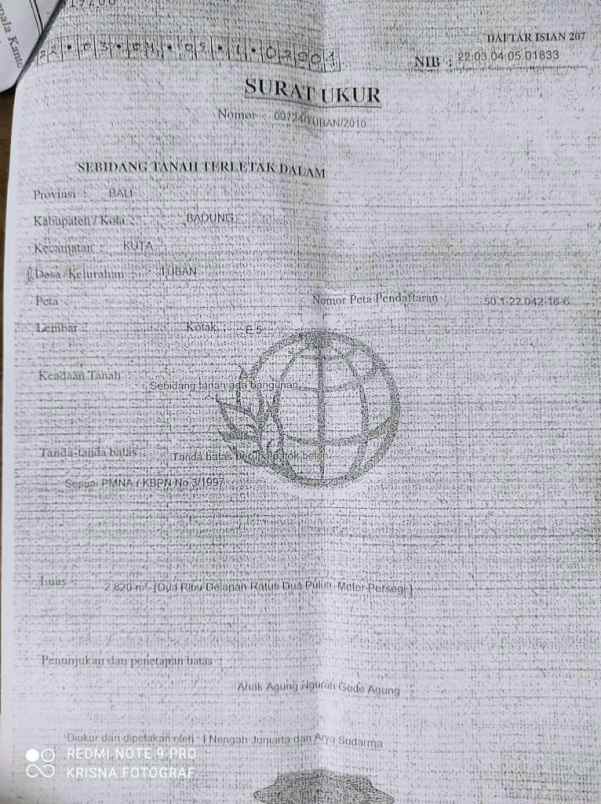 DAFTAR ISIAN 207
22.03.04.05.1.02001
NIB : 22.03.04.05.01833
SURAT UKUR
Nomor : /TUBAN/2010
SEBIDANG TANAH TERLETAK DALAM
Provinsi : BALI
Kabupaten / Kota : BADUNG
Kecamatan : KUTA
Desa / Kelurahan : TUBAN
Peta Nomor Peta Pendaftaran : 50.1-22.042-16-6
Lembar : Kotak : E.5
Keadaan Tanah
Sebidang tanah ada bangunan
Tanda-tanda batas Tanda batas beton
Sesuai PMNA / KBPN No 3/1997
Luas : 2.820 m² [Dua Ribu Delapan Ratus Dua Puluh Meter Persegi ]
Penunjukan dan penetapan batas :
Anak Agung Ngurah Gede Agung
Diukur dan dipetakan oleh : I Nengah Juniarta dan Arya Sudarma
REDMI NOTE 9 PRO
KRISNA FOTOGRAF